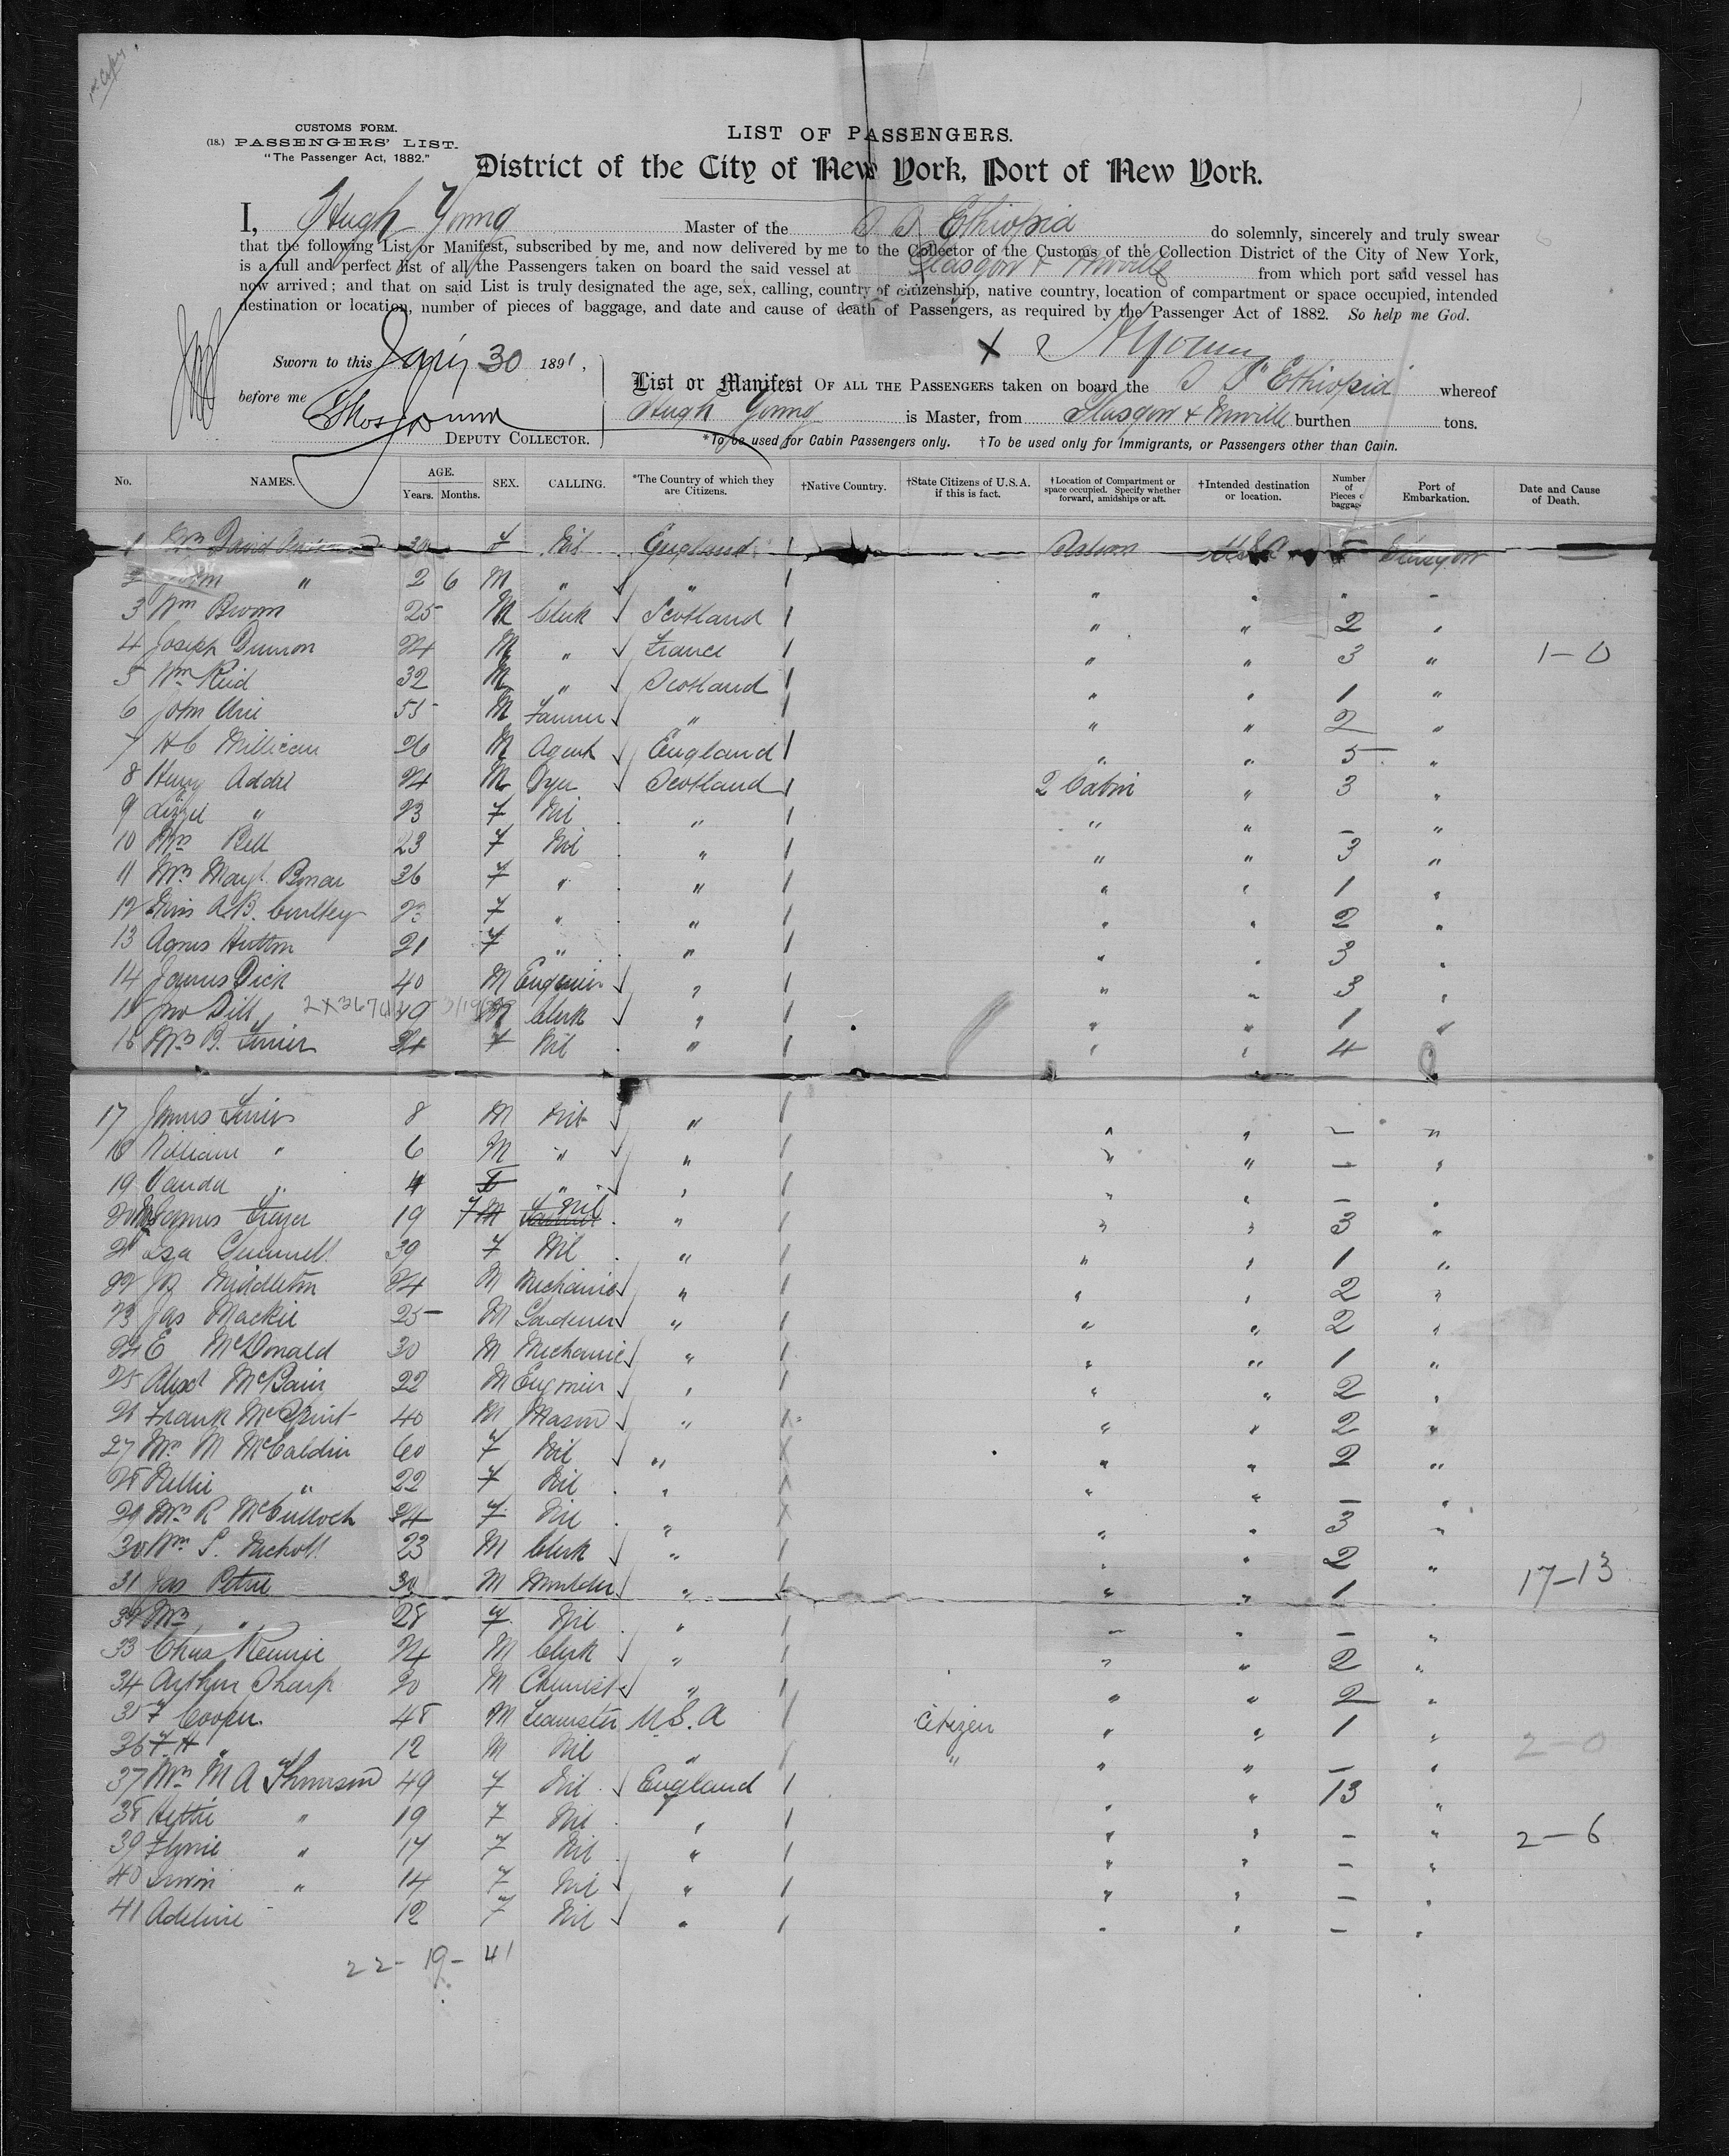 CUSTOMS FORM.
(18.) PASSENGERS' LIST.
"The Passenger Act, 1882."
LIST OF PASSENGERS.
District of the City of New York, Port of New York.
I, Hugh Young Master of the S. S. Ethiopia do solemnly, sincerely and truly swear
that the following List or Manifest, subscribed by me, and now delivered by me to the Collector of the Customs of the Collection District of the City of New York,
is a full and perfect list of all the Passengers taken on board the said vessel at Glasgow & Moville from which port said vessel has
now arrived; and that on said List is truly designated the age, sex, calling, country of citizenship, native country, location of compartment or space occupied, intended
destination or location, number of pieces of baggage, and date and cause of death of Passengers, as required by the Passenger Act of 1882. So help me God.
X H Young
Sworn to this 30 1891,
before me
DEPUTY COLLECTOR.
List or Manifest OF ALL THE PASSENGERS taken on board the S S "Ethiopia" whereof
Hugh Young is Master, from Glasgow & Moville burthen tons.
*To be used for Cabin Passengers only. †To be used only for Immigrants, or Passengers other than Cabin.
No. NAMES. AGE. Years. Months. SEX. CALLING. *The Country of which they are Citizens. †Native Country. †State Citizens of U.S.A. if this is fact. †Location of Compartment or space occupied. Specify whether forward, amidships or aft. †Intended destination or location. Number of Pieces of baggage Port of Embarkation. Date and Cause of Death.
1 Mrs David 30 F Nil England Saloon U.S.A. 5 Glasgow
2 John " 2 6 M " " " " " "
3 Wm Brown 25 M Clerk Scotland " " 2 "
4 Joseph 24 M " France " " 3 " 1-0
5 Wm Reid 32 M " Scotland " " 1 "
6 John 55 M Farmer " " " 2 "
7 H C Millican 26 M Agent England " " 5 "
8 Henry Addie 24 M Dyer Scotland 2 Cabin " 3 "
9 Lizzie " 23 F Nil " " " – "
10 Mrs Bell 23 F Nil " " " 3 "
11 Mrs Margt. Bonar 36 F " " " " 1 "
12 Miss A.B. 23 F " " " " 2 "
13 Agnes Hutton 21 F " " " " 3 "
14 James Dick 40 M Engineer " " " 3 "
15 Jno Dill 40 M Clerk " " " 1 "
16 Mrs B. Ferrier 34 F Nil " " " 4 "
17 James Ferrier 8 M Nil " " " – "
18 William " 6 M " " " " – "
19 " 4 F " " " " – "
20 Agnes Frazer 19 F Nil " " " 3 "
21 Isa Gemmell 39 F Nil " " " 1 "
22 Middleton 24 M Mechanic " " " 2 "
23 Jas Mackie 25 M Gardener " " " 2 "
24 E McDonald 30 M Mechanic " " " 1 "
25 Alexr McBain 22 M Engineer " " " 2 "
26 Frank 40 M Mason " " " 2 "
27 Mrs M McCaldin 60 F Nil " " " 2 "
28 Nellie " 22 F Nil " " " – "
29 Mrs R McCulloch 24 F Nil " " " 3 "
30 Wm S. Nicholl 23 M Clerk " " " 2 "
31 Jas Petrie 30 M Moulder " " " 1 " 17-13
32 Mrs " 28 F Nil " " " – "
33 Chas Rennie 24 M Clerk " " " 2 "
34 Arthur Sharp 20 M Chemist " " " 2 "
35 F Cooper. 48 M Teamster U.S.A Citizen " " 1 "
36 F.H " 12 M Nil " " " " – " 2-0
37 Mrs M A Thomson 49 F Nil England " " 13 "
38 Hettie " 19 F Nil " " " – "
39 " 17 F Nil " " " – " 2-6
40 " 14 F Nil " " " – "
41 Adeline " 12 F Nil " " " – "
22-19-41